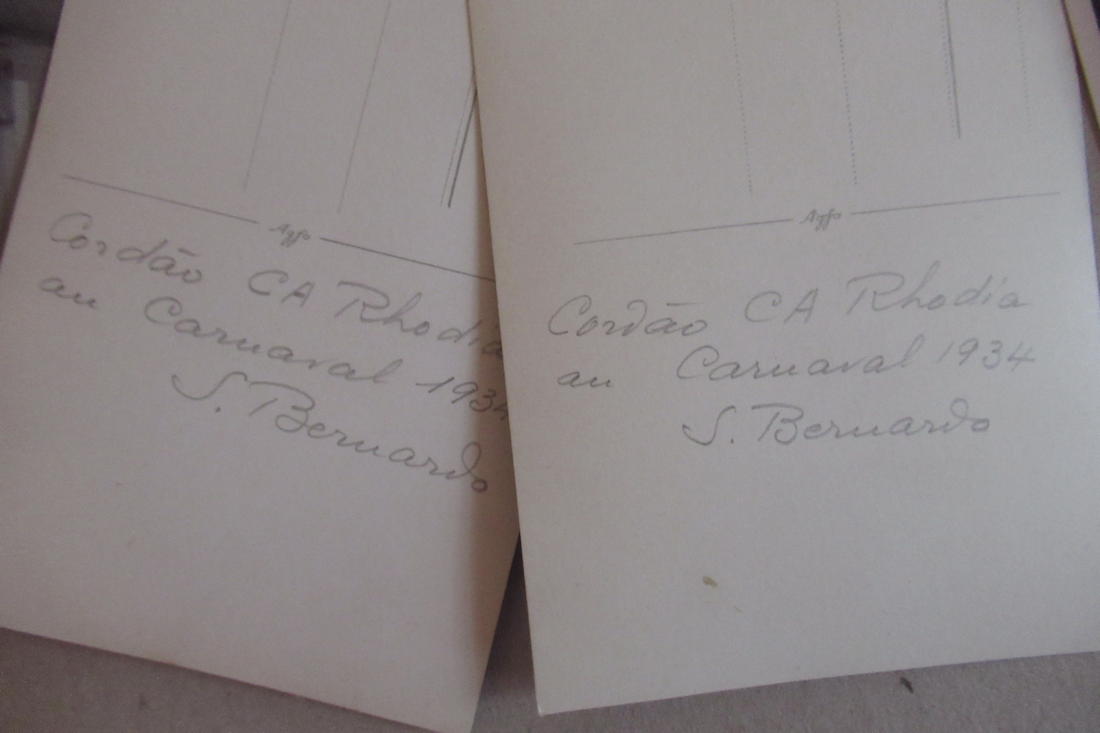 Agfa
Cordão CA Rhodia
au Carnaval 1934
S. Bernardo
Agfa
Cordão CA Rhodia
au Carnaval 1934
S. Bernardo